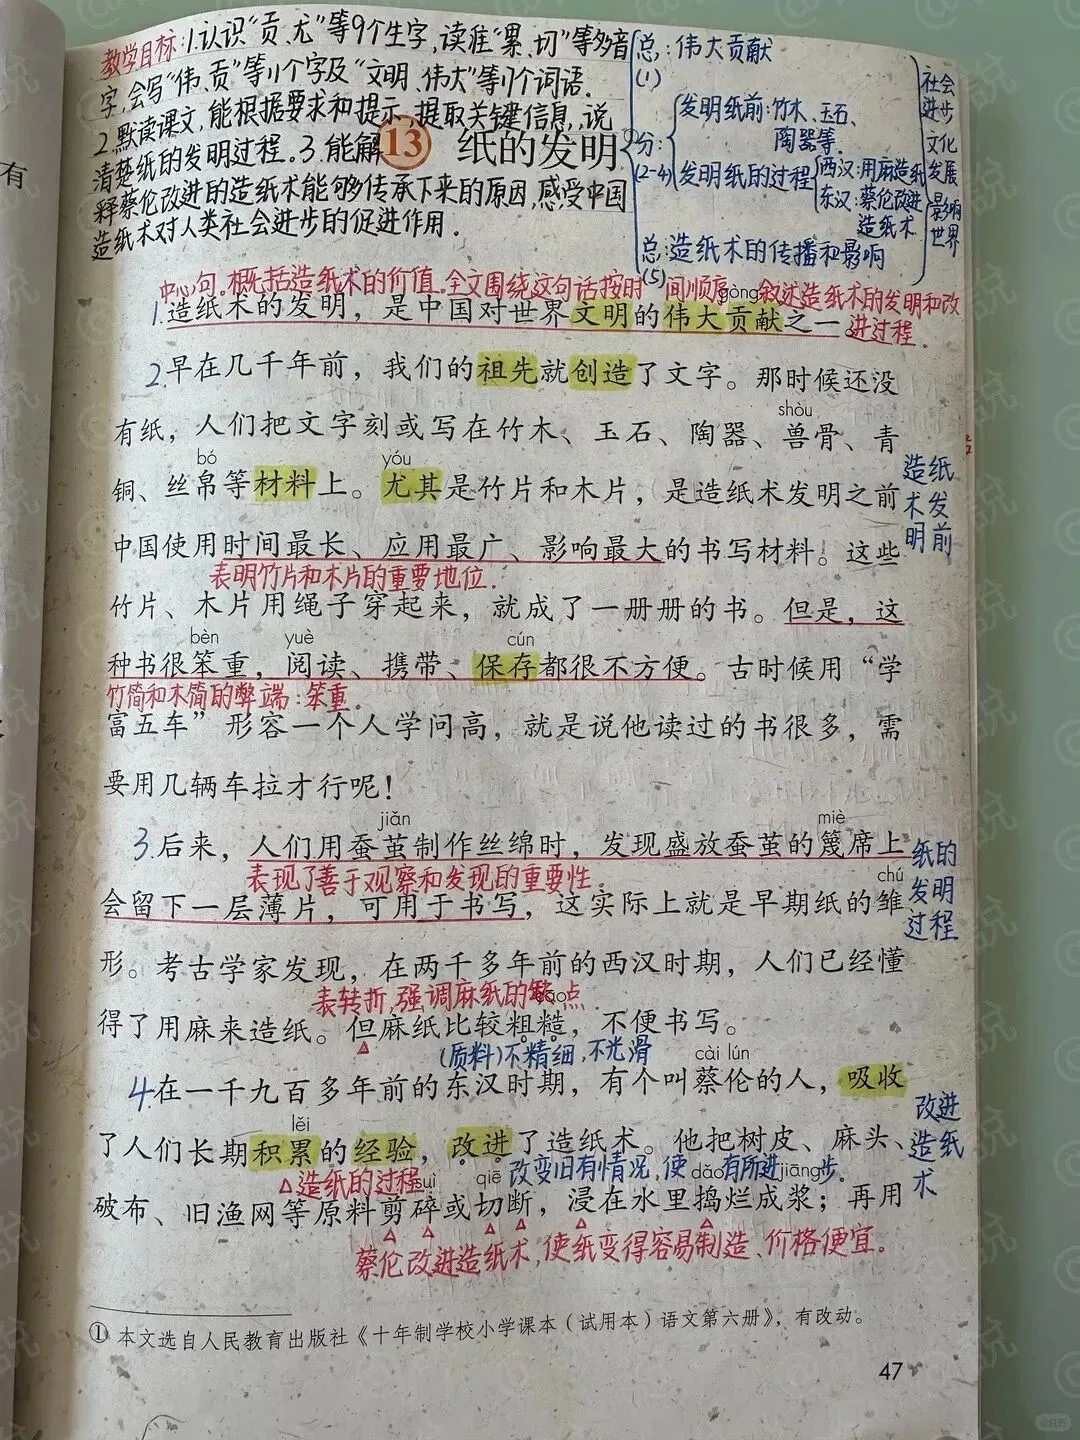 教学目标:1.认识“贡、尤”等9个生字,读准“累、切”等多音
字,会写“伟、贡”等11个字及“文明、伟大”等17个词语.
2.默读课文,能根据要求和提示,提取关键信息,说
清楚纸的发明过程。3.能解
释蔡伦改进的造纸术能够传承下来的原因,感受中国
造纸术对人类社会进步的促进作用.
13 纸的发明
总:伟大贡献
(1)
分:
(2-4)
发明纸前:竹木、玉石、
陶器等.
发明纸的过程
西汉:用麻造纸
东汉:蔡伦改进
造纸术
总:造纸术的传播和影响
(5)
社会
进步
文化
发展
影响
世界
有
中心句.概括造纸术的价值.全文围绕这句话按时间顺序叙述造纸术的发明和改
进过程.
gòng
1.造纸术的发明，是中国对世界文明的伟大贡献之一。
2.早在几千年前，我们的祖先就创造了文字。那时候还没
shòu
有纸，人们把文字刻或写在竹木、玉石、陶器、兽骨、青
bó yóu
铜、丝帛等材料上。尤其是竹片和木片，是造纸术发明之前
中国使用时间最长、应用最广、影响最大的书写材料。这些
表明竹片和木片的重要地位.
竹片、木片用绳子穿起来，就成了一册册的书。但是，这
bèn yuè cún
种书很笨重，阅读、携带、保存都很不方便。古时候用“学
竹简和木简的弊端:笨重.
富五车”形容一个人学问高，就是说他读过的书很多，需
要用几辆车拉才行呢！
造纸
术发
明前
jiǎn miè
3.后来，人们用蚕茧制作丝绵时，发现盛放蚕茧的篾席上
表现了善于观察和发现的重要性.
chú
会留下一层薄片，可用于书写，这实际上就是早期纸的雏
形。考古学家发现，在两千多年前的西汉时期，人们已经懂
表转折,强调麻纸的缺点.
得了用麻来造纸。但麻纸比较粗糙，不便书写。
(质料)不精细,不光滑
纸的
发明
过程
cài lún
4.在一千九百多年前的东汉时期，有个叫蔡伦的人，吸收
lěi
了人们长期积累的经验，改进了造纸术。他把树皮、麻头、
造纸的过程
改变旧有情况,使有所进步.
suì qiē dǎo jiāng
破布、旧渔网等原料剪碎或切断，浸在水里捣烂成浆；再用
蔡伦改进造纸术,使纸变得容易制造、价格便宜.
改进
造纸
术
① 本文选自人民教育出版社《十年制学校小学课本（试用本）语文第六册》，有改动。
47